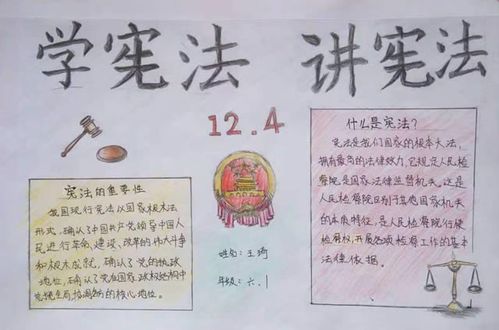 学宪法 讲宪法
12.4
宪法的重要性
我国现行宪法以国家根本法
形式，确认了中国共产党领导中国人
民进行革命、建设、改革的伟大斗争
和根本成就，确认了党的执政
地位，确认了党在国家政权结构中
总揽全局、协调各方的核心地位。
姓名：王琦
年级：六.1
什么是宪法？
宪法是我们国家的根本大法，
拥有最高的法律效力，它规定人民检
察院是国家法律监督机关。这是
人民检察院区别于其他国家机关
的本质特征，是人民检察院行使
检察权，开展各项检察工作的基本
法律依据。